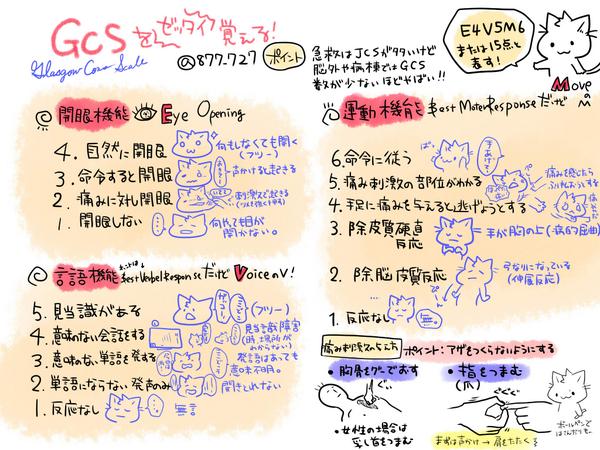 GCSをゼッタイ覚える!
Glasgow Coma Scale
@877_727
ポイント
急救はJCSが多いけど
脳外や病棟ではGCS
数が少ないほどやばい!!
E4V5M6
または15点と
表す!
開眼機能 Eye Opening
4. 自然に開眼
何もしなくても開く
(フリー)
3. 命令すると開眼
声かけすると起きる
2. 痛みに対し開眼
刺激で起きる
1. 開眼しない
何やっても目が
開かない。
言語機能 Best Verbal Response だけど VoiceのV!
5. 見当識がある
(フリー)
4. 意味のない会話をする
見当識障害
(時、場所が
わからない)
3. 意味のない単語を発する
発語はあっても
意味不明。
2. 単語にならない発声のみ
聞きとれない
1. 反応なし
無言
運動機能 Best Motor Response だけど
MoveのM
6. 命令に従う
5. 痛み刺激の部位がわかる
痛みを感じたら
4. 手足に痛みを与えると逃げようとする
3. 除皮質硬直
反応
手が胸の上(病的屈曲)
2. 除脳皮質反応
弓なりになっている
(伸展反応)
1. 反応なし
無。
痛み刺激の与え方
ポイント:アザをつくらないようにする
・胸骨をグーでおす
・女性の場合は
乳し首をつまむ
・指をつまむ
(爪)
ボールペンで
はさんだりも。
まずは声かけ→肩をたたくる